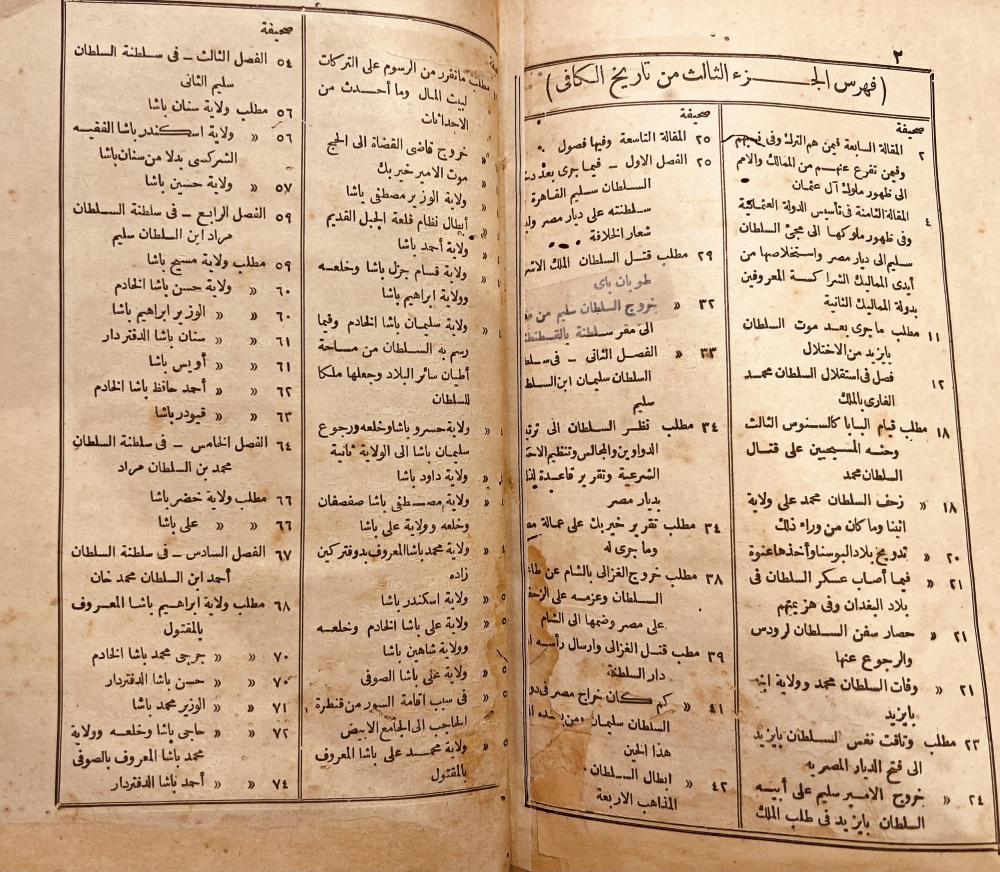 ٢
(فهرس الجزء الثالث من تاريخ الكافى)
صحيفة
٢ المقالة السابعة فيمن هم الترك وفى نسبهم
وفيمن تفرع عنهم من الممالك والامم
الى ظهور ملوك آل عثمان
٤ المقالة الثامنة فى تأسيس الدولة العثمانية
وفى ظهور ملوكها الى مجئ السلطان
سليم الى ديار مصر واستخلاصها من
أيدى المماليك الشراكسة المعروفين
بدولة المماليك الثانية
١١ مطلب ماجرى بعد موت السلطان
بايزيد من الاختلال
١٢ فصل فى استقلال السلطان محمد
الغازى بالملك
١٨ مطلب قيام البابا كالسنوس الثالث
وحثه المسيحيين على قتال
السلطان محمد
١٨ » زحف السلطان محمد على ولاية
اثينا وما كان من وراء ذلك
٢٠ » تدويخ بلاد البوسنا وأخذها عنوة
٢١ » فيما أصاب عسكر السلطان فى
بلاد البغدان وفى هزيمتهم
٢١ » حصار سفن السلطان لرودس
والرجوع عنها
٢١ » وفات السلطان محمد وولاية ابنه
بايزيد
٢٣ مطلب وتاقت نفس السلطان بايزيد
الى فتح الديار المصريه
٢٤ » خروج الامير سليم على أبيه
السلطان بايزيد فى طلب الملك
صحيفة
٢٥ المقالة التاسعة وفيها فصول
٢٥ الفصل الاول - فيما جرى بعد
السلطان سليم القاهرة
سلطنته على ديار مصر
شعار الخلافة
٢٩ مطلب قتل السلطان الملك
طومان باى
٣٢ » خروج السلطان سليم من
الى مقر سلطنة
٣٣ » الفصل الثانى - فى
السلطان سليمان ابن
سليم
٣٤ مطلب نظر السلطان الى
الدواوين والمجالس وتنظيم
الشرعية وتقرير قاعدة
بديار مصر
٣٤ مطلب تقرير خير بك على عمالة
وماجرى له
٣٨ مطلب خروج الغزالى بالشام عن
السلطان وعزمه على
على مصر وضمها الى الشام
٣٩ مطب قتل الغزالى وارسال رأسه
دار السلطنة
٤١ » كم كان خراج مصر فى
السلطان سليمان ومن بعده
هذا الحين
٤٢ » ابطال السلطان
المذاهب الاربعة
مطلب ماتقرر من الرسوم على التركات
لبيت المال وما أحدث من
الاحداثات
» خروج قاضى القضاة الى الحج
» موت الامير خير بك
» ولاية الوزير مصطفى باشا
» أبطال نظام قلعة الجبل القديم
» ولاية أحمد باشا
» ولاية قسام جزل باشا وخلعه
وولاية ابراهيم باشا
» ولاية سليمان باشا الخادم وفيما
رسم به السلطان من مساحة
أطيان سائر البلاد وجعلها ملكا
للسلطان
» ولاية خسرو باشا وخلعه ورجوع
سليمان باشا الى الولاية ثانية
» ولاية داود باشا
» ولاية مصطفى باشا صفصفان
وخلعه وولاية على باشا
» ولاية محمد باشا المعروف بدوقتركين
زاده
» ولاية اسكندر باشا
» ولاية على باشا الخادم وخلعه
وولاية شاهين باشا
» ولاية على باشا الصوفى
» فى سبب اقامة السور من قنطرة
الحاجب الى الجامع الابيض
» ولاية محمد على باشا المعروف
بالمقتول
صحيفة
٥٤ الفصل الثالث - فى سلطنة السلطان
سليم الثانى
٥٦ مطلب ولاية سنان باشا
٥٦ » ولاية اسكندر باشا الفقيه
الشركسى بدلا من سنان باشا
٥٧ » ولاية حسين باشا
٥٩ الفصل الرابع - فى سلطنة السلطان
مراد ابن السلطان سليم
٥٩ مطلب ولاية مسيح باشا
٦٠ » ولاية حسن باشا الخادم
٦٠ » » الوزير ابراهيم باشا
٦١ » » سنان باشا الدفتردار
٦١ » » أويس باشا
٦٢ » » أحمد حافظ باشا الخادم
٦٣ » » قيودر باشا
٦٤ الفصل الخامس - فى سلطنة السلطان
محمد بن السلطان مراد
٦٦ مطلب ولاية خضر باشا
٦٦ » » على باشا
٦٧ الفصل السادس - فى سلطنة السلطان
أحمد ابن السلطان محمد خان
٦٨ مطلب ولاية ابراهيم باشا المعروف
بالمقتول
٧٠ » » جرجى محمد باشا الخادم
٧٠ » » حسن باشا الدفتردار
٧١ » » الوزير محمد باشا
٧٢ » » حاجى باشا وخلعه وولاية
محمد باشا المعروف بالصوفى
٧٤ » » أحمد باشا الدفتردار